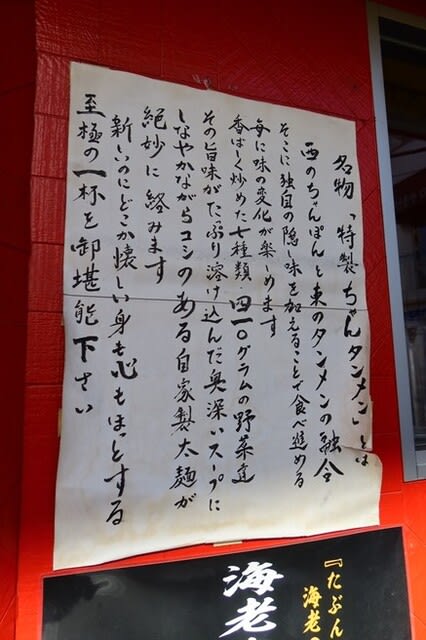 名物「特製ちゃんタンメン」とは
西のちゃんぽんと東のタンメンの融合
そこに独自の隠し味を加えることで食べ進める
毎に味の変化が楽しめます
香ばしく炒めた七種類 四一〇グラムの野菜達
その旨味がたっぷり溶け込んだ奥深いスープに
しなやかながらコシのある自家製太麺が
絶妙に絡みます
新しいのにどこか懐しい身も心もほっとする
至極の一杯を御堪能下さい
『たぶん
海老
海老